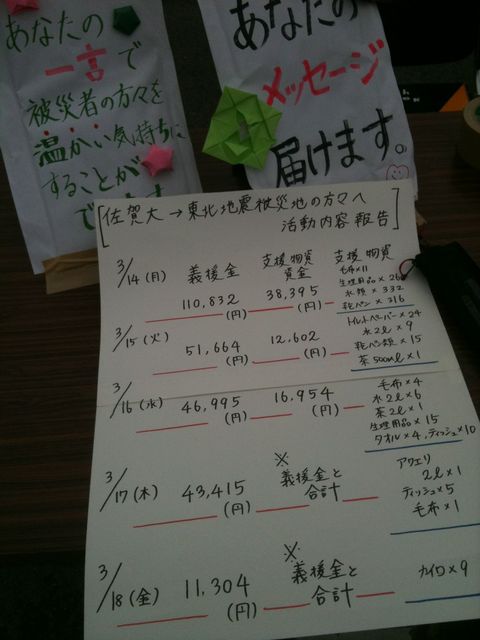 あなたの
一言で
被災者の方々を
温かい気持ちに
することが
あなたの
メッセージ
届けます。
[佐賀大→東北地震被災地の方々へ
活動内容報告]
3/14(月) 義援金 支援物資資金 支援物資
110,832(円) 38,395(円)
毛布×11
生理用品×26
水類×332
乾パン×316
3/15(火) 51,664(円) 12,602(円)
トイレットペーパー×24
水2ℓ×9
乾パン類×15
茶500mℓ×1
3/16(水) 46,995(円) 16,954(円)
毛布×4
水2ℓ×6
茶2ℓ×1
生理用品×15
タオル×4、ティッシュ×10
3/17(木) 43,415(円) ※義援金と合計
アクエリ
2ℓ×1
ティッシュ×5
毛布×1
3/18(金) 11,304(円) ※義援金と合計
カイロ×9